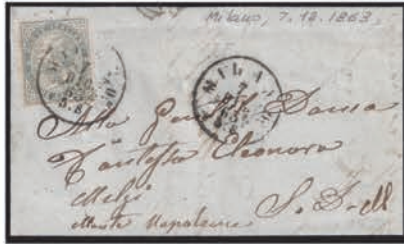 Milano, 7.12.1863
MILANO
7
63
Alla Gentil Dama
Contessa Eleonora
Melzi
Monte Napoleone
S. D. M